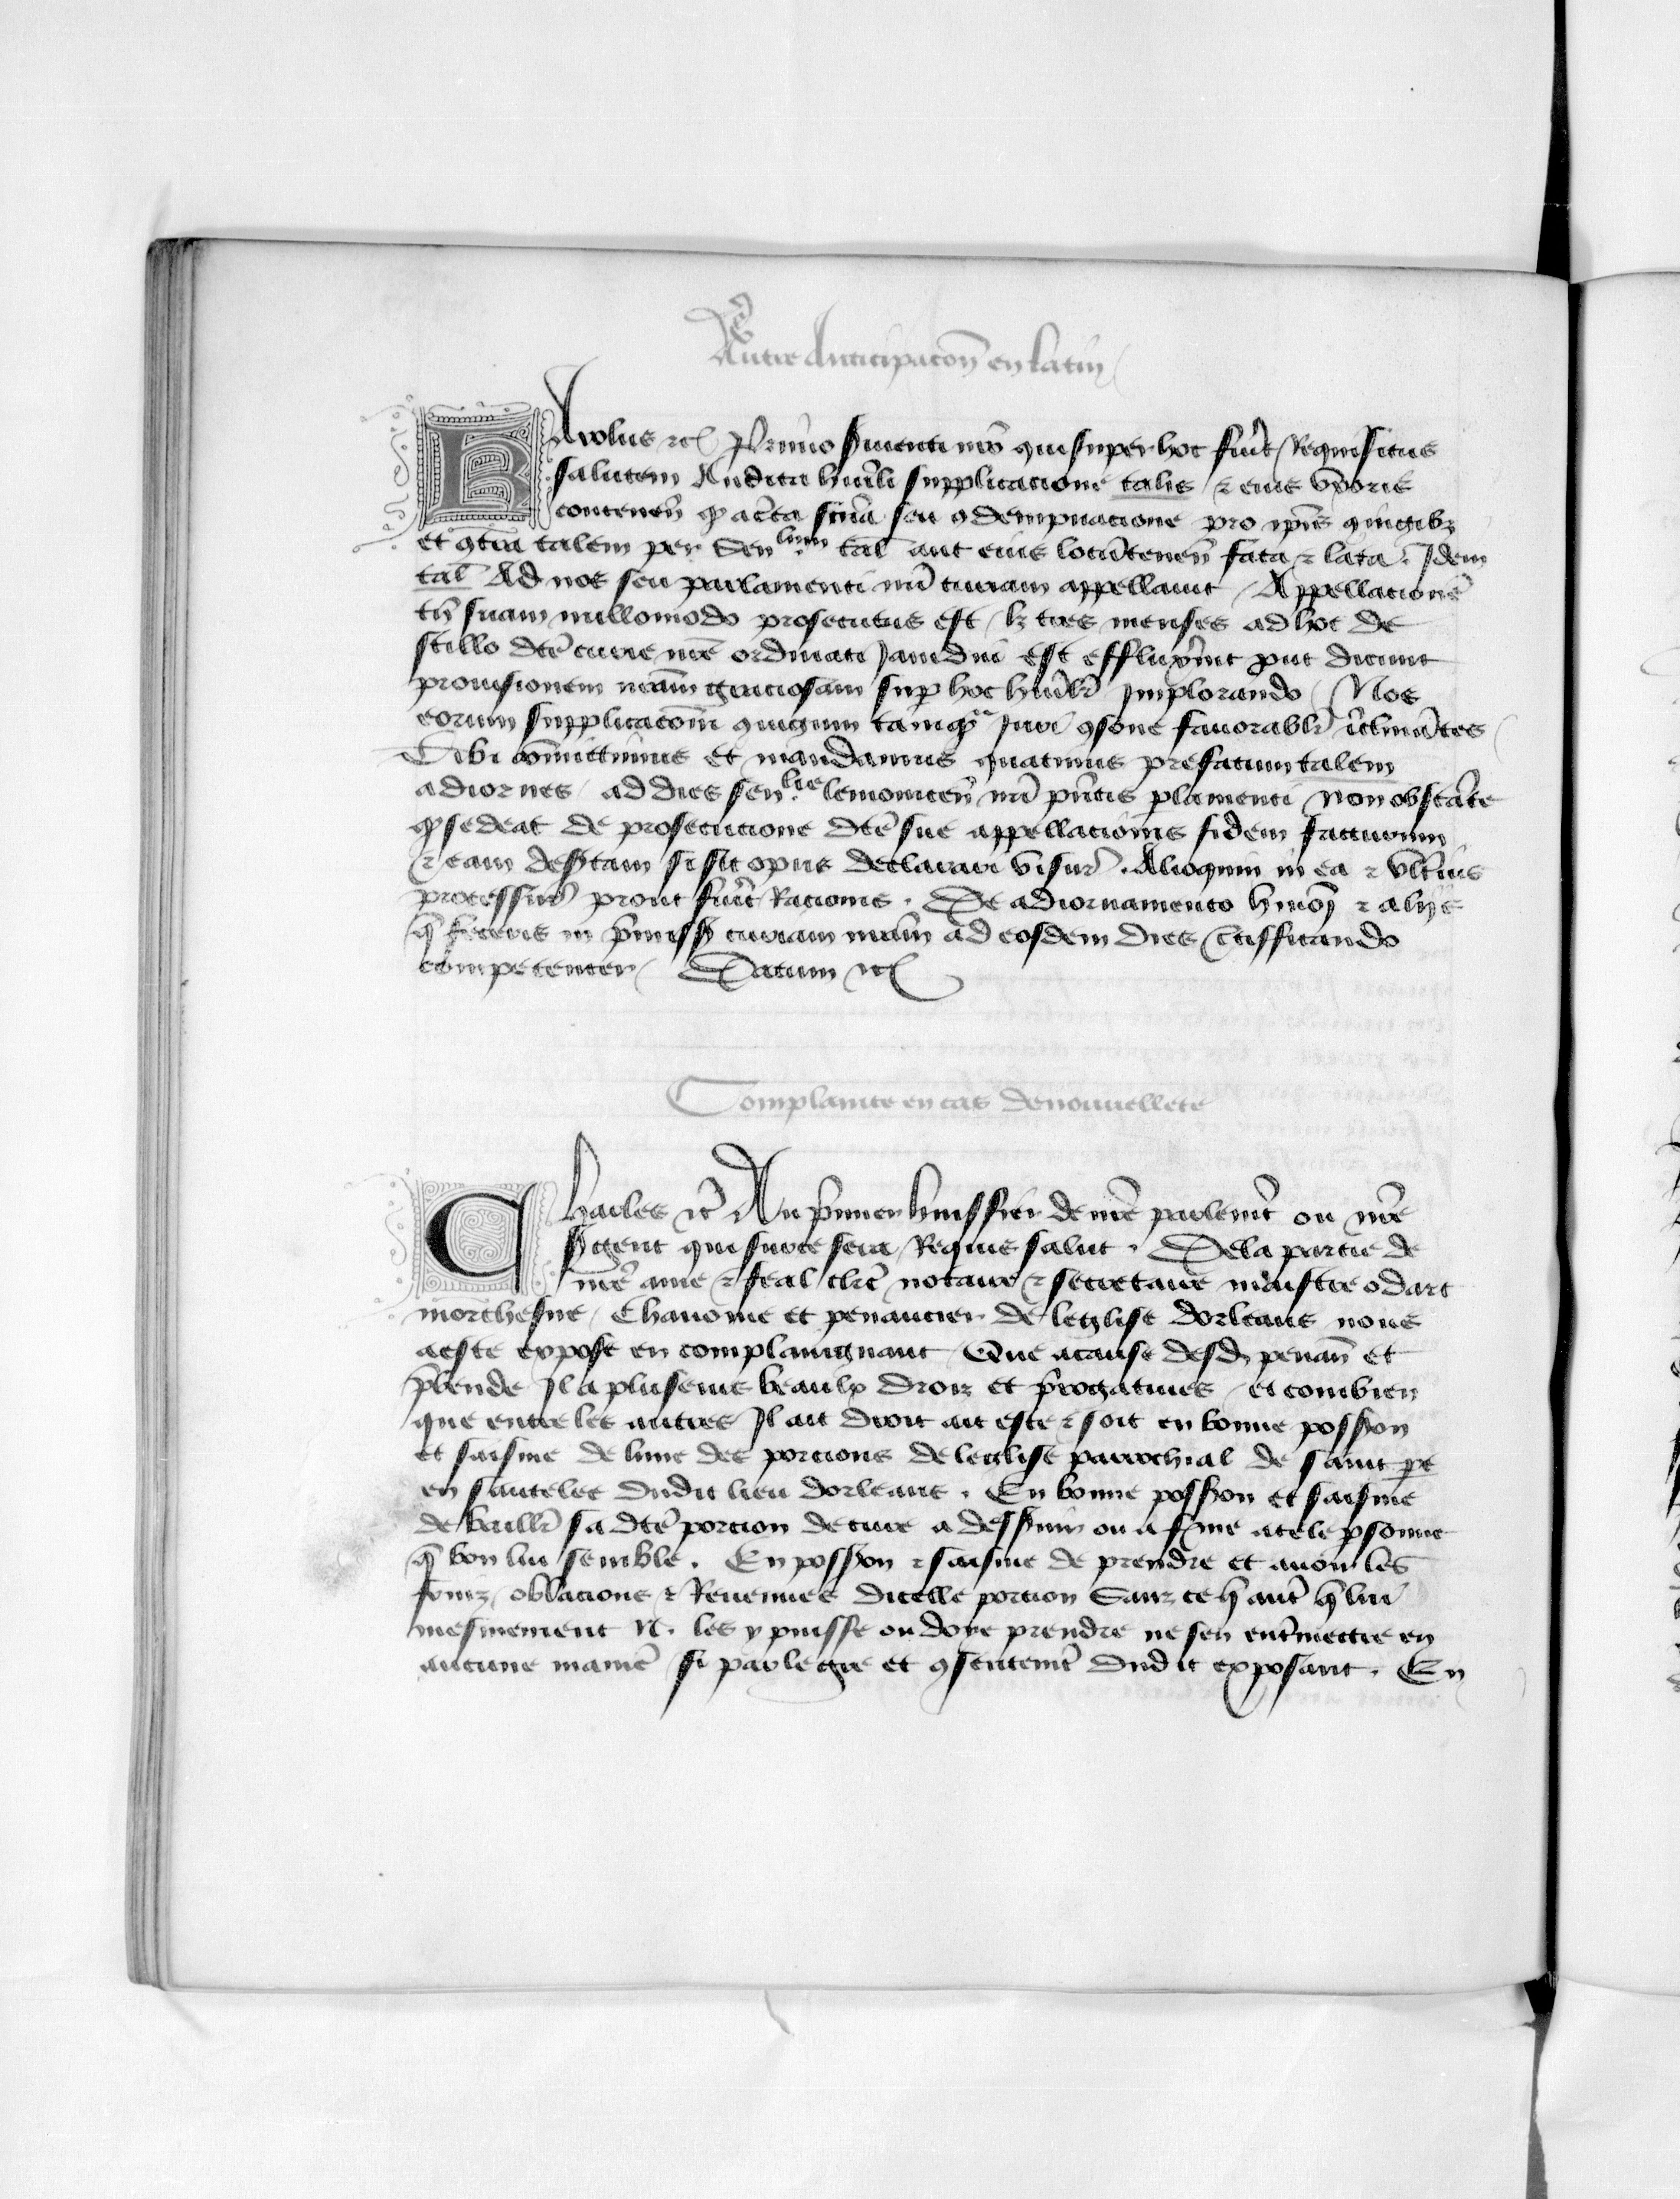 Autre Anticipacōn en latin
Karolus etc̄ Primo s̄vienti nr̄o qui super hoc fuer̄t Requisitus
salutem Audita humili supplicacione talis ⁊ eius uxoris
contenen̄ qꝫ a cer̄ta sn̄ia seu ꝯdempnacione pro ip̄is ꝯiugibꝫ
et ꝯtra talem per sen.llum tal̄ aut eius locūtenen̄ fc̄ta ⁊ lata. Idem
tal̄ Ad nos seu parlamenti nr̄i curiam appellavit Appellacionē
tn̄ suam nullomodo prosecutus est lꝫ tres menses ad hoc de
stillo dc̄e curie nr̄e ordinati Jamdiu est effluxer̄int put dicunt
provisionem nr̄am graciosam sup hoc humilr̄ Implorando Nos
eorum supplicacōni ꝯiugum tamqꝫ Juri ꝯsone favorablr̄ īclinātes
Tibi cōmittimus et mandamus quatinus prefatum talem
adiornes ad dies sen.lie lemovicen̄ nr̄i pn̄tis plamenti non obstāte
qꝫ sedeat de prosecucione dc̄e sue appellacionis fidem facturum
⁊ eam des̄tam si sit opus declarari visur̄. Alioquin in ea ⁊ ult̄ius
processur̄ prout fuer̄t Racionis. De adiornamento hmōi ⁊ alijs
q̄ feceris in p̄miss̄ curiam nr̄am ad eosdem dies c̄tifficando
competenter Datum etc̄
Complainte en cas de nouvellete
Charles etc̄ Au p̄mier huissier de nr̄e parlemēt ou nr̄e
s̄gent qui sur ce sera Requis salut. De la partie de
nr̄e ame ⁊ feal clerc̄ notaire ⁊ secretaire maistre odart
morchesne Chanoine et penancier de leglise dorleans nous
a este expose en complaingnant Que a cause desd. penan̄ et
p̄bende Il a plusieurs beaulx droiz et p̄rogatives et combien
que entre les autres Il ait droit ait este ⁊ soit en bonne poss̄ion
et saisine de lune des porcions de leglise parrochial de saint pe
en sautelee dudit lieu dorleans. En bonne poss̄ion et saisine
de baillr̄ sa dc̄e porcion de cure a dess̄vir ou a f̄me a tele p̄sonne
q̄ bon lui semble. En poss̄ion ⁊ saisine de prendre et avoir les
fruiz oblacions ⁊ Revenues dicelle porcion Sanz ce q̄ autr̄ q̄ lui
mesmement N. les y puisse ou doye prendre ne sen entr̄mectre en
aucune manier̄ si par le gre et ꝯsentemēt dudit exposant. En